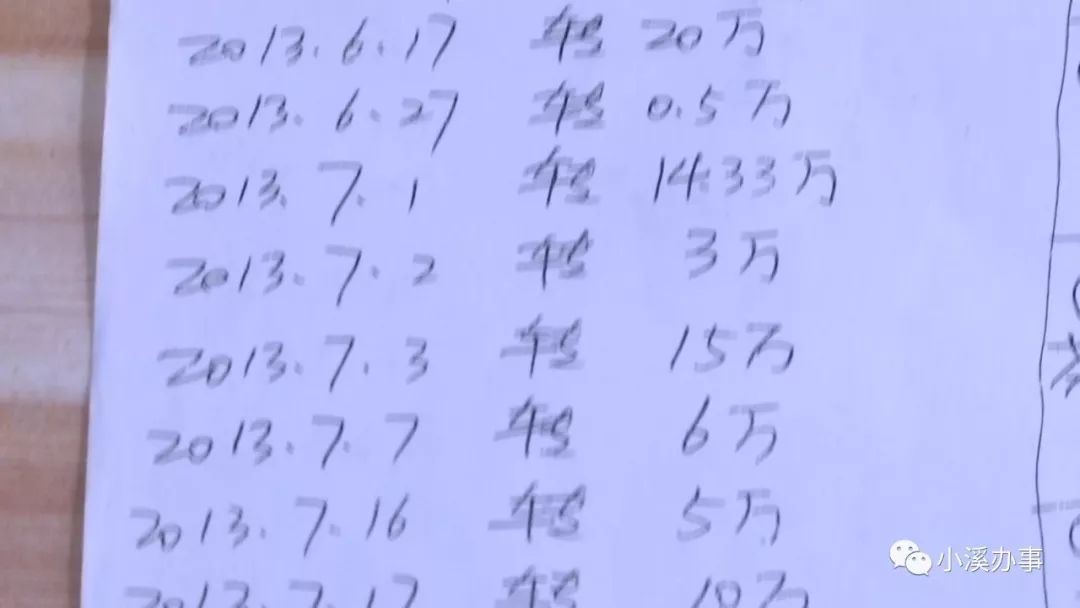 2013.6.17 转 20万
2013.6.27 转 0.5万
2013.7.1 转 14.33万
2013.7.2 转 3万
2013.7.3 转 15万
2013.7.7 转 6万
2013.7.16 转 5万
2013.7.17 转 10万
小溪办事